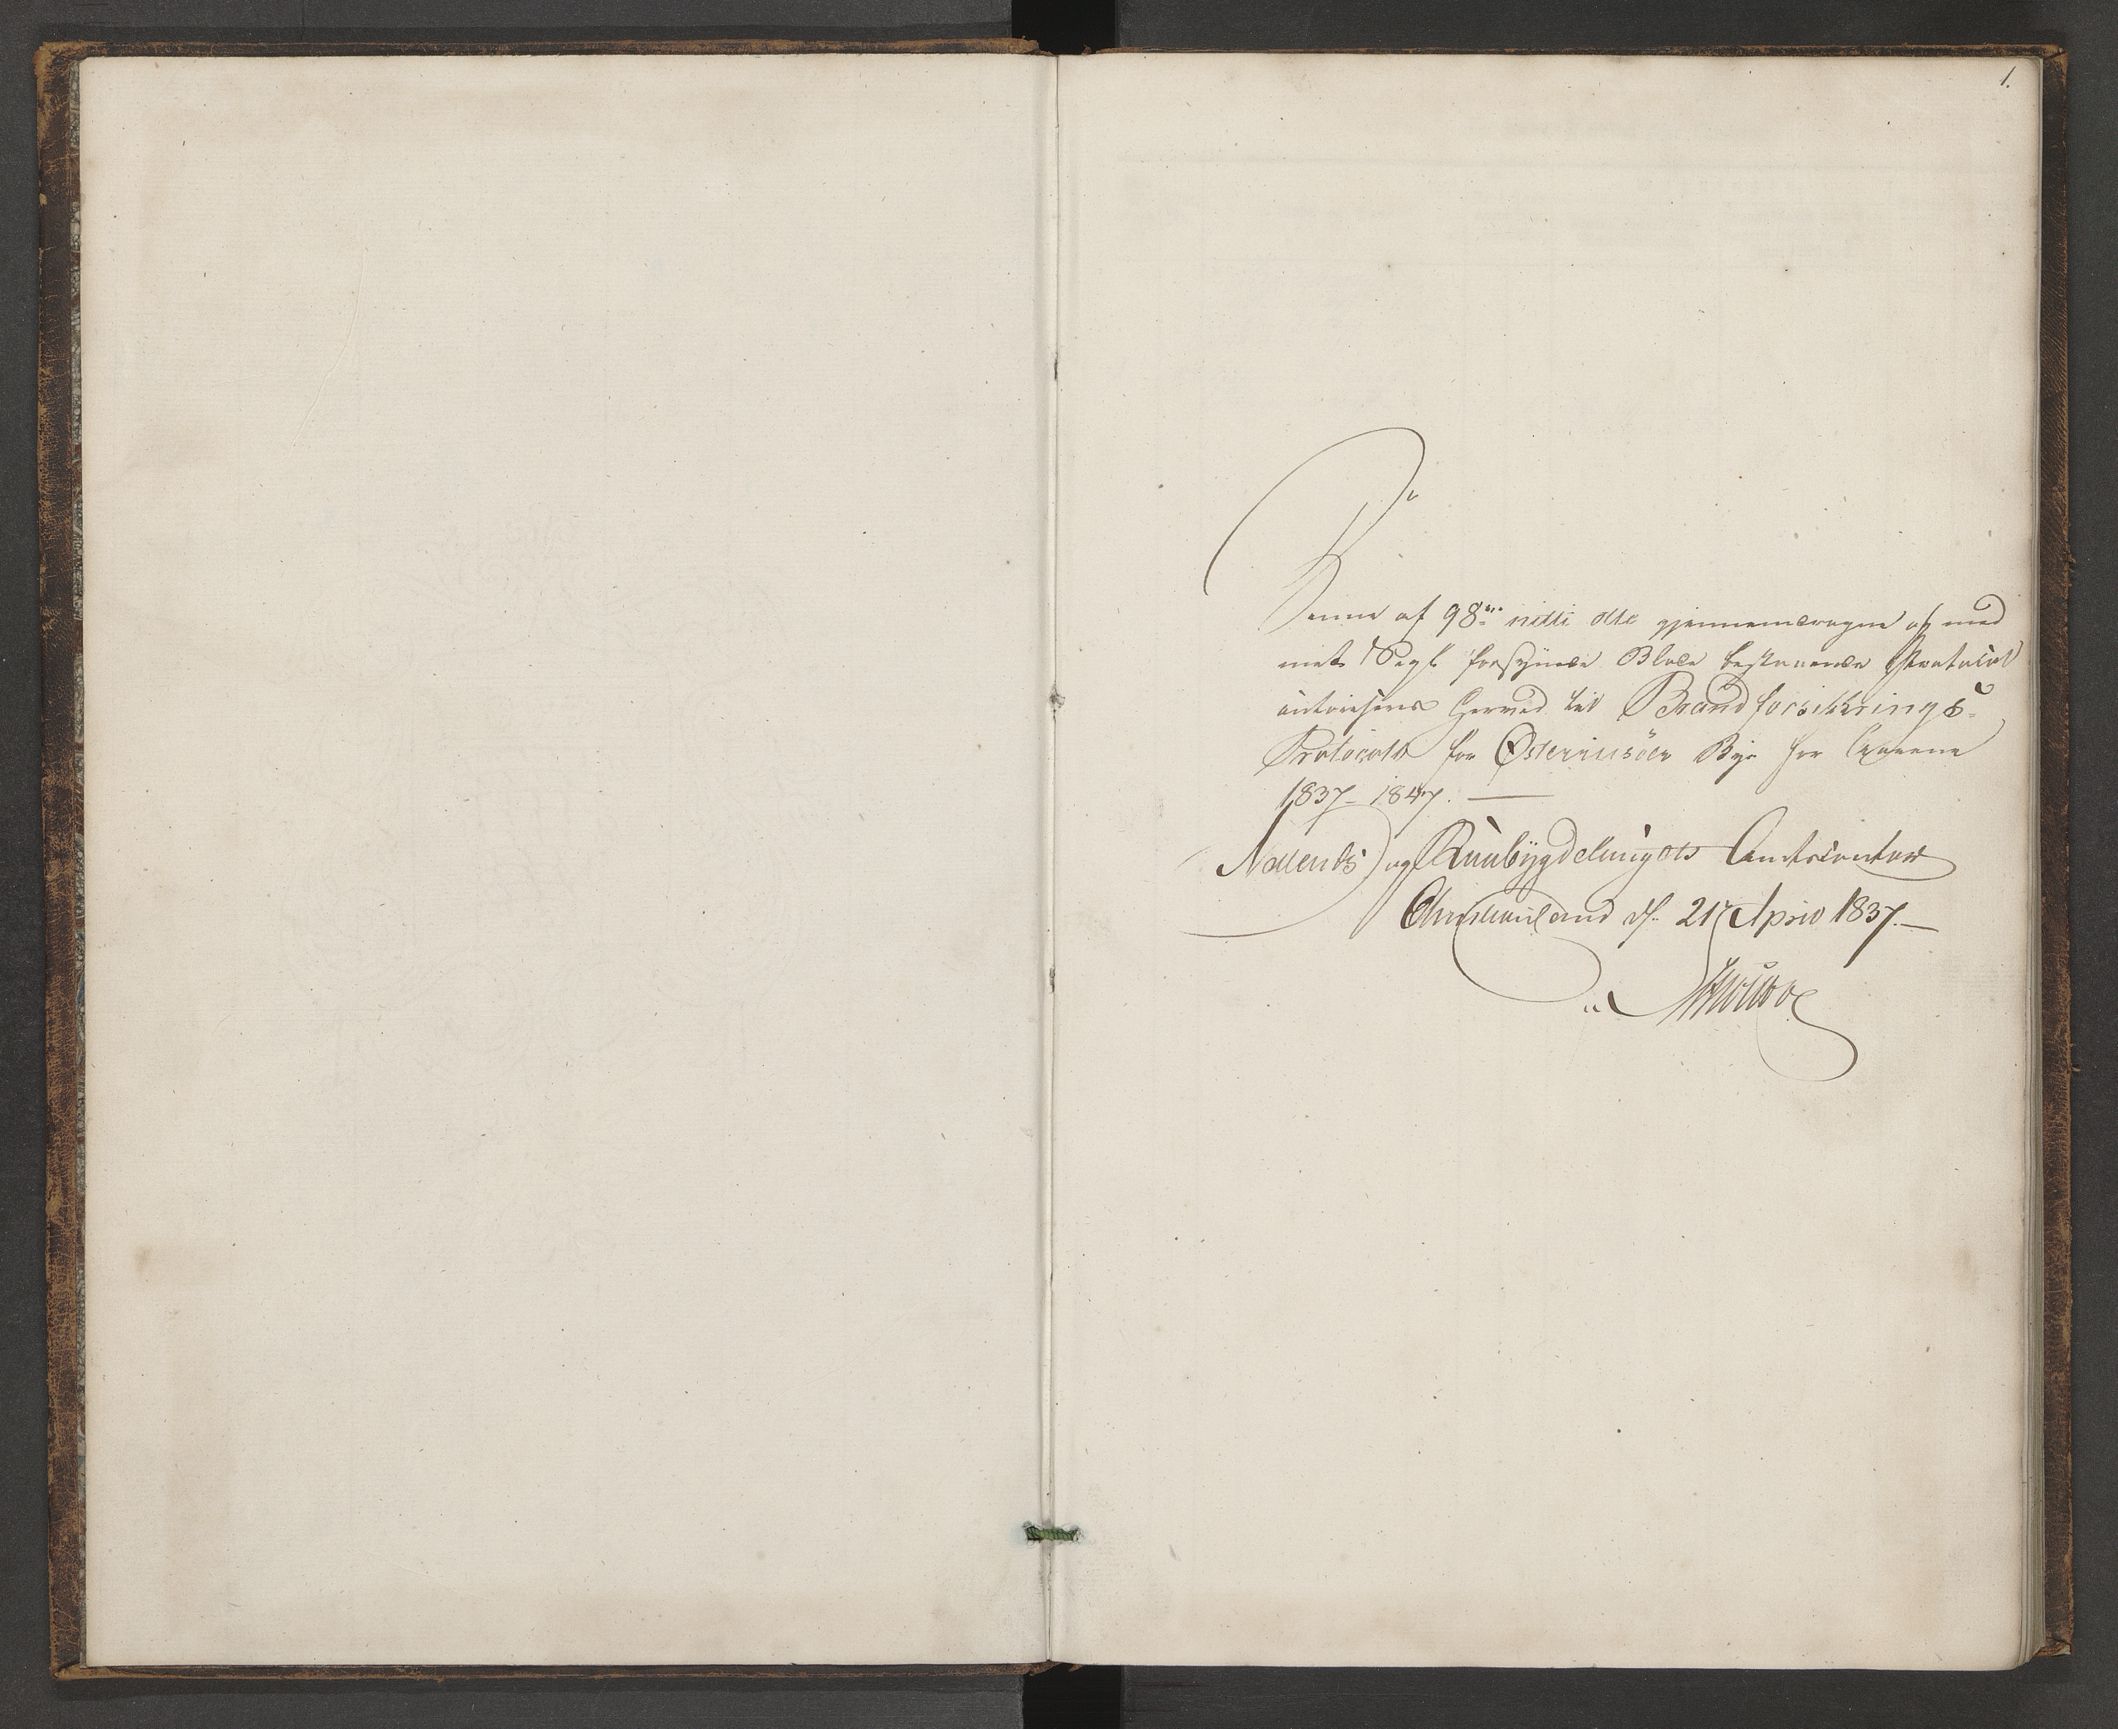 1.
Denne af 98de nitti otte gjennemdragne og med
mit Segl forsynede Blade bestaaende Protocol
autoriseres herved til Brandforsikkrings-
Protocoll for Østeriisöer Bye for Aarene
1837–1847.
Nedenes og Raabygdelaugets Amtscontor
Christiansand d. 21 April 1837.